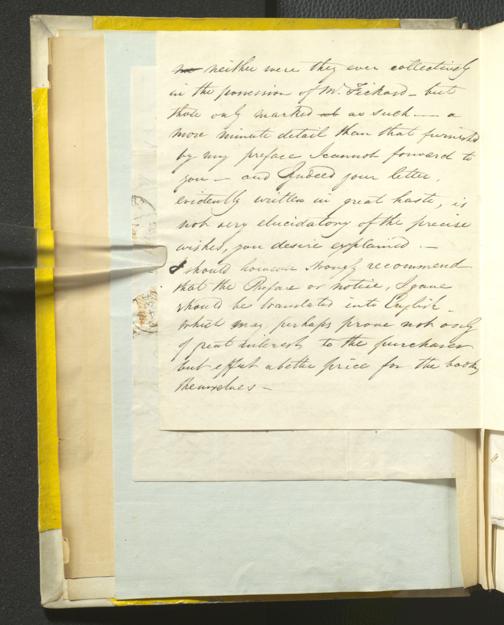 neither were they ever collectively
in the possession of Mr. Fickard - but
those only marked as such — a
more minute detail than that furnished
by my preface I cannot forward to
you — and Indeed your letter,
evidently written in great haste, is
not very elucidatory of the precise
wishes, you desire explained. —
I should however strongly recommend
that the Preface or notice, I gave
should be translated into English.
which may perhaps prove not only
of great interest to the purchaser
but effect a better price for the books
themselves —